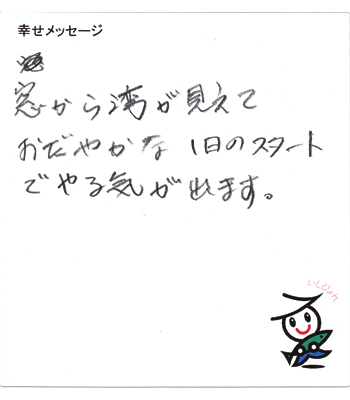 幸せメッセージ
窓から湾が見えて
おだやかな 1日のスタート
でやる気が出ます。
いしぴょん